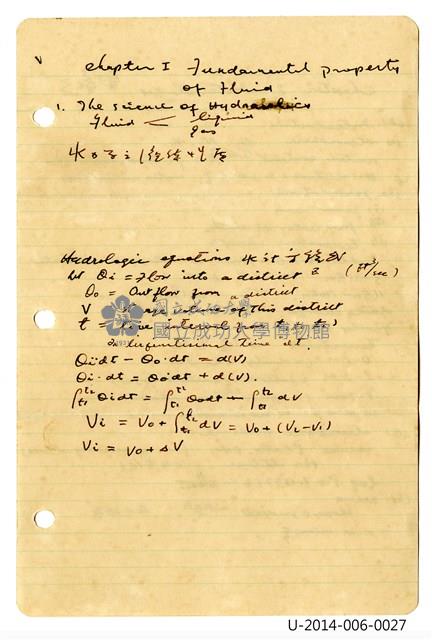 V
chapter I Fundamental property
of Fluid
1. The science of Hydraulics
Fluid < liquid
gas
Hydrologic equations
let Qi = Flow into a district (ft³/sec)
Qo = Out flow from a district
V = of this district
t = time interval from t₁ to t₂
time dt.
Qi·dt − Qo·dt = d(V)
Qi·dt = Qo·dt + d(V).
∫t₁t₂ Qi dt = ∫t₁t₂ Qo dt + ∫t₁t₂ dV
Vi = Vo + ∫t₁t₂ dV = Vo + (V₂ − V₁)
Vi = Vo + ΔV
國立成功大學
國立成功大學博物館
U-2014-006-0027